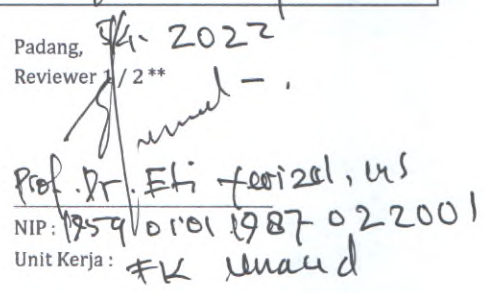 Padang, 5/4- 2022
Reviewer 1 / 2 **
Prof. Dr. Eti Yerizel, MS
NIP : 19590101 1987 022001
Unit Kerja : FK Unand